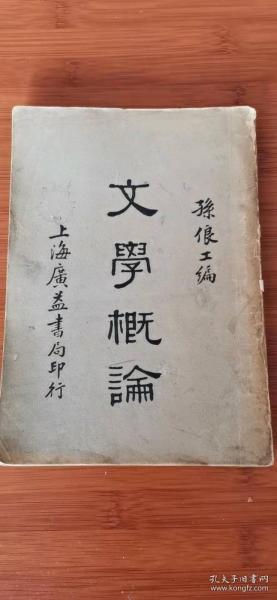 孫俍工編
文學概論
上海廣益書局印行
孔夫子旧书网
kongfz.com